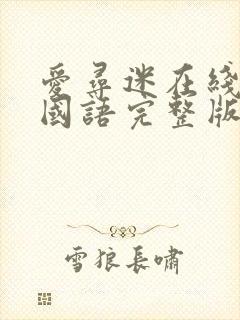 愛尋迷在綫
國語完整版
雪狼長嘯